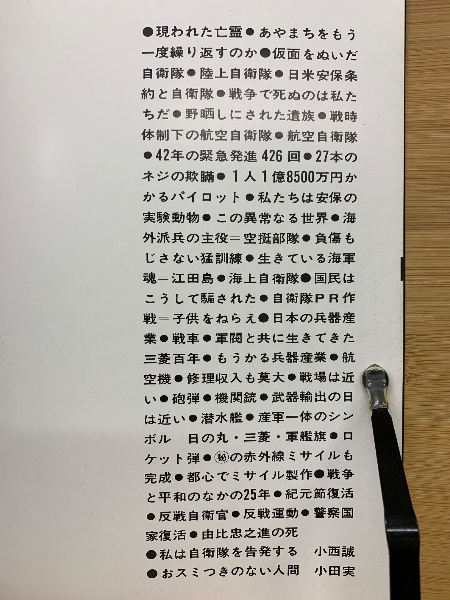 ●現われた亡霊●あやまちをもう
一度繰り返すのか●仮面をぬいだ
自衛隊●陸上自衛隊●日米安保条
約と自衛隊●戦争で死ぬのは私た
ちだ●野晒しにされた遺族●戦時
体制下の航空自衛隊●航空自衛隊
●42年の緊急発進426回●27本の
ネジの欺瞞●1人1億8500万円か
かるパイロット●私たちは安保の
実験動物●この異常なる世界●海
外派兵の主役＝空挺部隊●負傷も
じさない猛訓練●生きている海軍
魂＝江田島●海上自衛隊●国民は
こうして騙された●自衛隊PR作
戦＝子供をねらえ●日本の兵器産
業●戦車●軍閥と共に生きてきた
三菱百年●もうかる兵器産業●航
空機●修理収入も莫大●戦場は近
い●砲弾●機関銃●武器輸出の日
は近い●潜水艦●産軍一体のシン
ボル　日の丸・三菱・軍艦旗●ロ
ケット弾●㊙の赤外線ミサイルも
完成●都心でミサイル製作●戦争
と平和のなかの25年●紀元節復活
●反戦自衛官●反戦運動●警察国
家復活●由比忠之進の死
●私は自衛隊を告発する　小西誠
●おスミつきのない人間　小田実